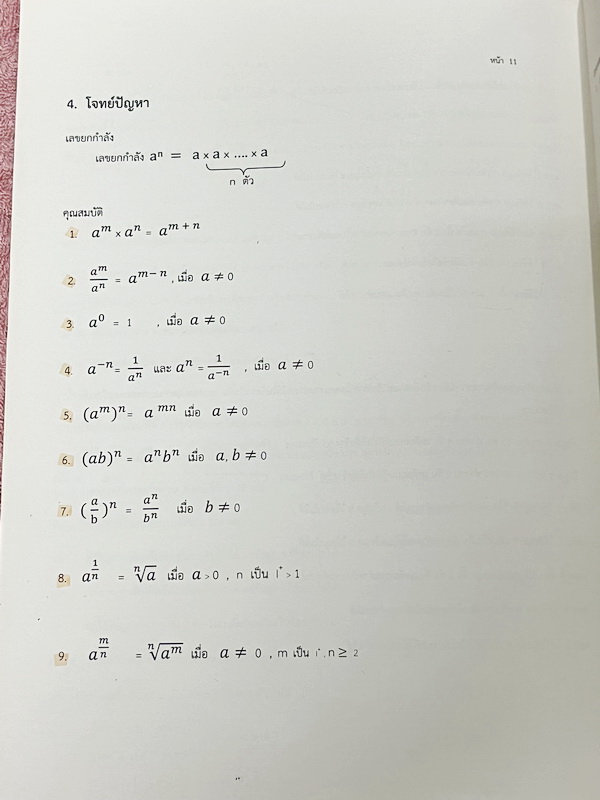 หน้า 11
4. โจทย์ปัญหา
เลขยกกำลัง
เลขยกกำลัง aⁿ = a × a × .... × a
n ตัว
คุณสมบัติ
1. a^m × a^n = a^{m + n}
2. \frac{a^m}{a^n} = a^{m-n} , เมื่อ a ≠ 0
3. a^0 = 1 , เมื่อ a ≠ 0
4. a^{-n} = \frac{1}{a^n} และ a^n = \frac{1}{a^{-n}} , เมื่อ a ≠ 0
5. (a^m)^n = a^{mn} เมื่อ a ≠ 0
6. (ab)^n = a^n b^n เมื่อ a, b ≠ 0
7. (\frac{a}{b})^n = \frac{a^n}{b^n} เมื่อ b ≠ 0
8. a^{\frac{1}{n}} = \sqrt[n]{a} เมื่อ a > 0 , n เป็น I⁺ > 1
9. a^{\frac{m}{n}} = \sqrt[n]{a^m} เมื่อ a ≠ 0 , m เป็น I⁺, n ≥ 2